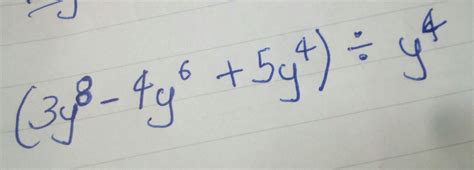 (3y⁸ - 4y⁶ + 5y⁴) ÷ y⁴